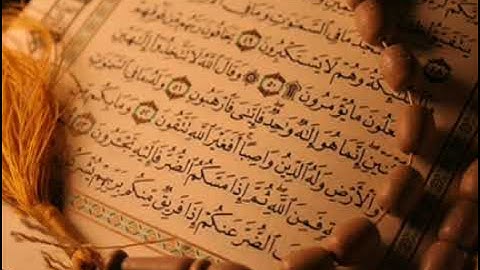 يَسْجُدُ مَا فِى السَّمَٰوَٰتِ وَمَا فِى
ئِكَةُ وَهُمْ لَا يَسْتَكْبِرُونَ ٤٩ يَخَافُونَ رَبَّهُم مِّن فَوْقِهِمْ
عَلُونَ مَا يُؤْمَرُونَ ۩ ٥٠ وَقَالَ اللَّهُ لَا تَتَّخِذُوٓا۟ إِلَٰهَيْنِ
ثْنَيْنِ إِنَّمَا هُوَ إِلَٰهٌ وَٰحِدٌ فَإِيَّٰىَ فَارْهَبُونِ ٥١ وَلَهُ مَا فِى السَّمَٰوَٰتِ
وَالْأَرْضِ وَلَهُ الدِّينُ وَاصِبًا أَفَغَيْرَ اللَّهِ تَتَّقُونَ ٥٢ وَمَا بِكُم
فَمِنَ اللَّهِ ثُمَّ إِذَا مَسَّكُمُ الضُّرُّ فَإِلَيْهِ تَجْـَٔرُونَ ٥٣
الضُّرَّ عَنكُمْ إِذَا فَرِيقٌ مِّنكُم بِرَبِّهِمْ